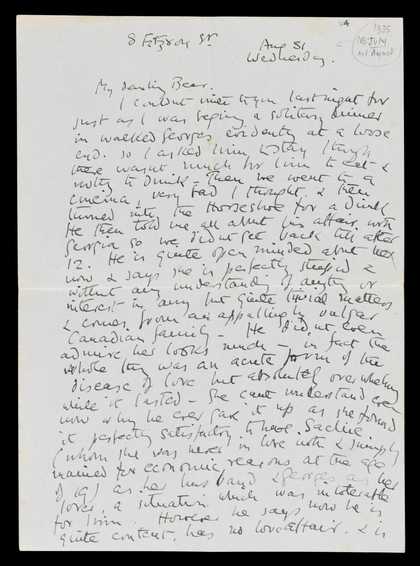 8 Fitzroy St
Aug 31
Wednesday.
My darling Bear.
I couldn't write to you last night for
just as I was begining a solitary dinner
in walked Georges evidently at a loose
end. So I asked him to stay though
there wasnt much for him to eat &
nothing to drink - Then we went to a
cinema, very bad I thought, & then
turned into the Horseshoe for a drink
He then told me all about his affair with
Georgia so we didnt get back till after
12. He is quite open minded about her
now & says she is perfectly stupid &
without any understanding of anything or
interest in any but quite trivial matters
& comes from an appallingly vulgar
Canadian family - He did not even
admire her looks much - in fact the
whole thing was an acute form of the
disease of love but absolutely overwhelming
while it lasted - She cant understand even
now why he ever gave it up as she found
it perfectly satisfactory to have
(whom she was never in love with & simply
married for economic reasons at the age
of 19) as her husband & Georges as her
lover, a situation which was intolerable
for him. However he says now he is
quite content, has no love affair, & is